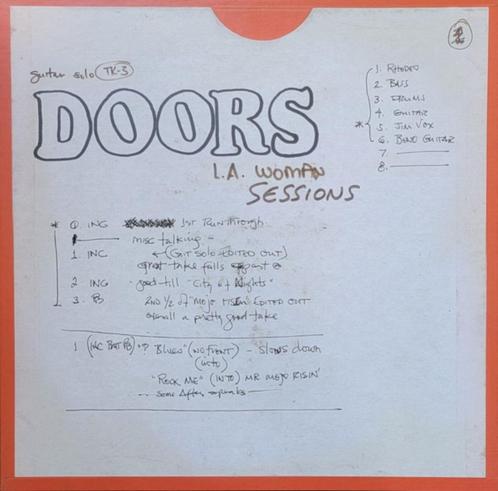 guitar solo TK-3
DOORS
L.A. WOMAN
SESSIONS
1. RHODES
2. BASS
3. DRUMS
4. GUITAR
* 5. JIM VOX
6. BEND GUITAR
7.
8.
* 0. ING 1ST Run through
misc talking -
1. INC ← (GIT SOLO EDITED OUT)
great take falls apart @
2 ING "good till "City of Nights"
3. PB 2ND 1/2 of "MOJO RISIN' EDITED OUT
overall a pretty good take
1 (INC BUT PB) "? BLUES" (NO FRONT) - Slows down
(into)
"ROCK ME" (INTO) MR MOJO RISIN'
-- some After